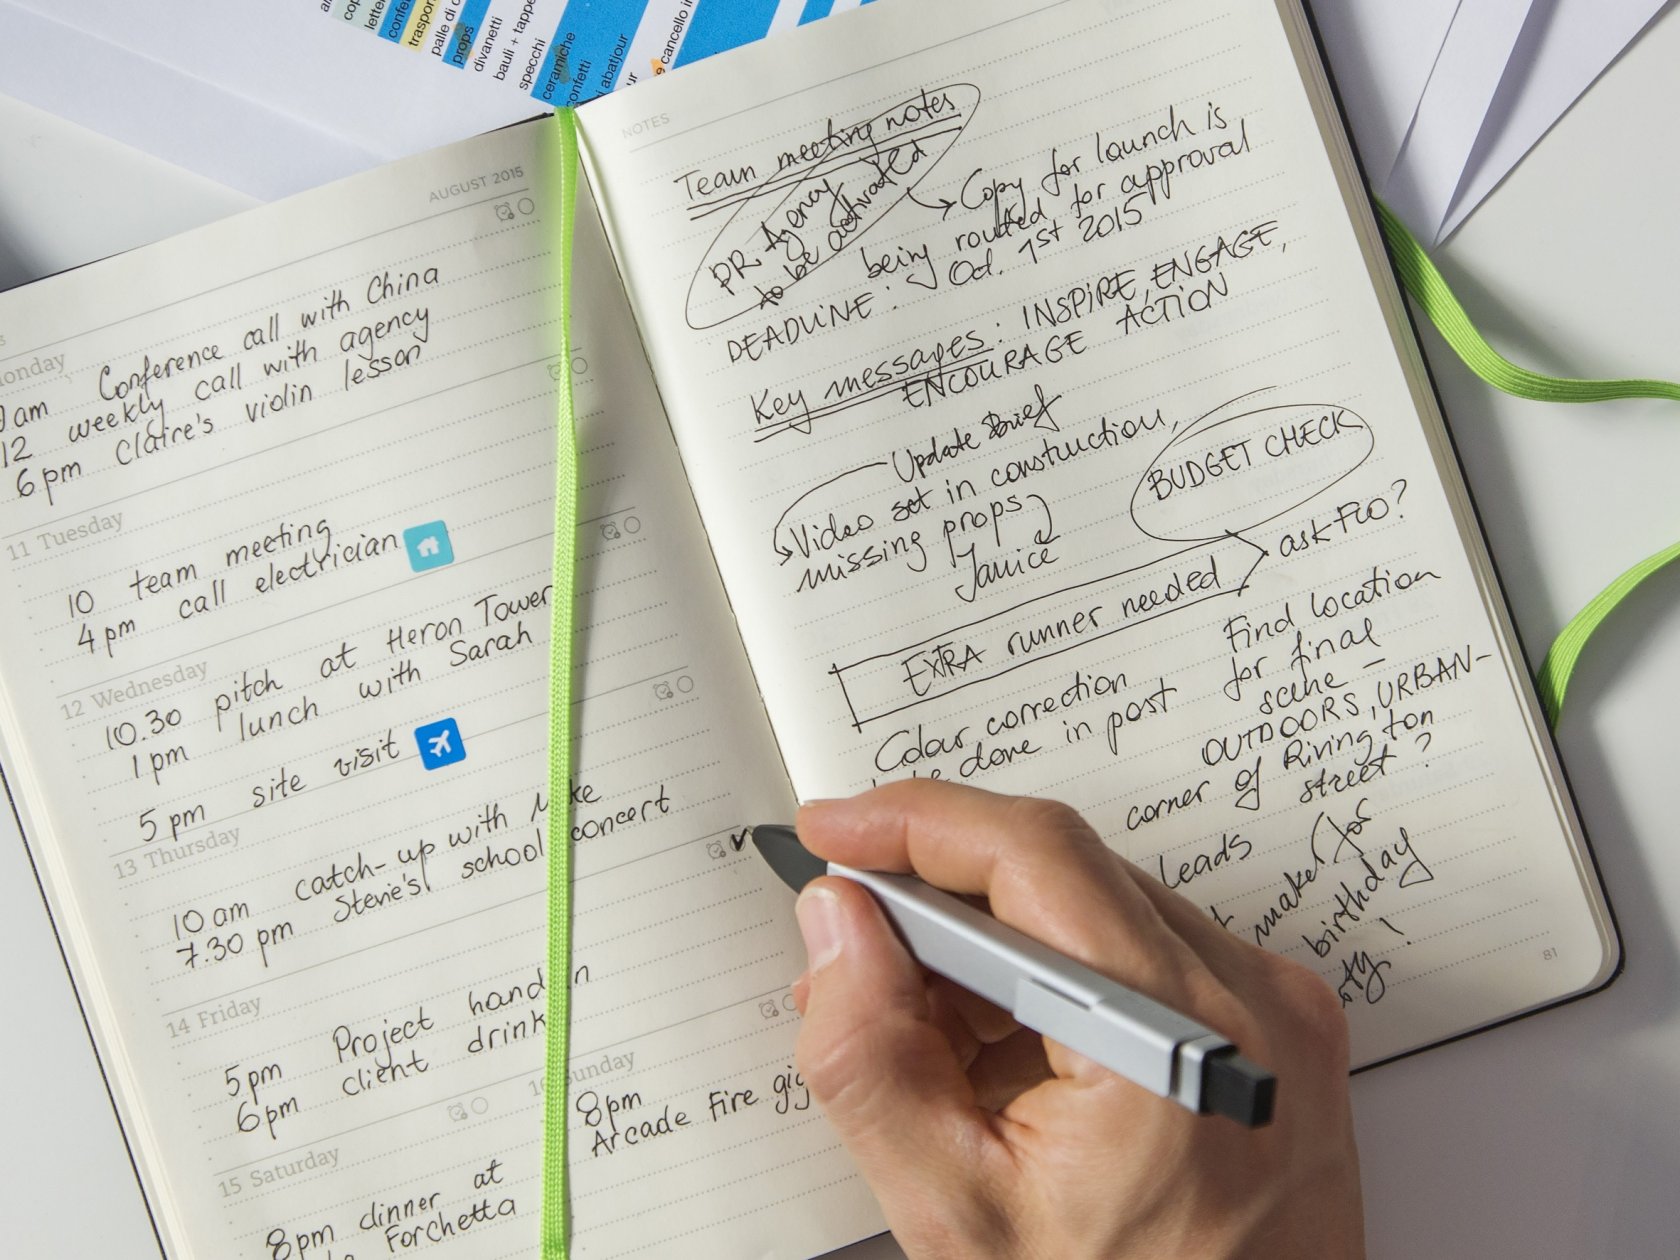 letter
confe
traspor
palle di
props
divanetti
bauli + tappe
specchi
ceramiche
confetti
abatjour
cancello i
AUGUST 2015
onday
am Conference call with China
12 weekly call with agency
6pm Claire's violin lesson
11 Tuesday
10 team meeting
4pm call electrician
12 Wednesday
10.30 pitch at Heron Tower
1pm lunch with Sarah
5pm site visit
13 Thursday
10am catch-up with
7.30pm Stevie's school concert
14 Friday
5pm Project hand in
6pm client drink
15 Saturday
8pm dinner at
Forchetta
16 Sunday
8pm
Arcade Fire gig
NOTES
Team meeting notes
PR Agency
to be activated
Copy for launch is
being routed for approval
DEADLINE: Oct. 1st 2015
Key messages: INSPIRE, ENGAGE,
ENCOURAGE ACTION
Update Brief
Video set in construction,
missing props
Janice
BUDGET CHECK
EXTRA runner needed
ask Flo?
Colour correction
done in post
Find location
for final
scene –
OUTDOORS, URBAN–
corner of Rivington
street?
Leads
make for
birthday
ty!
81